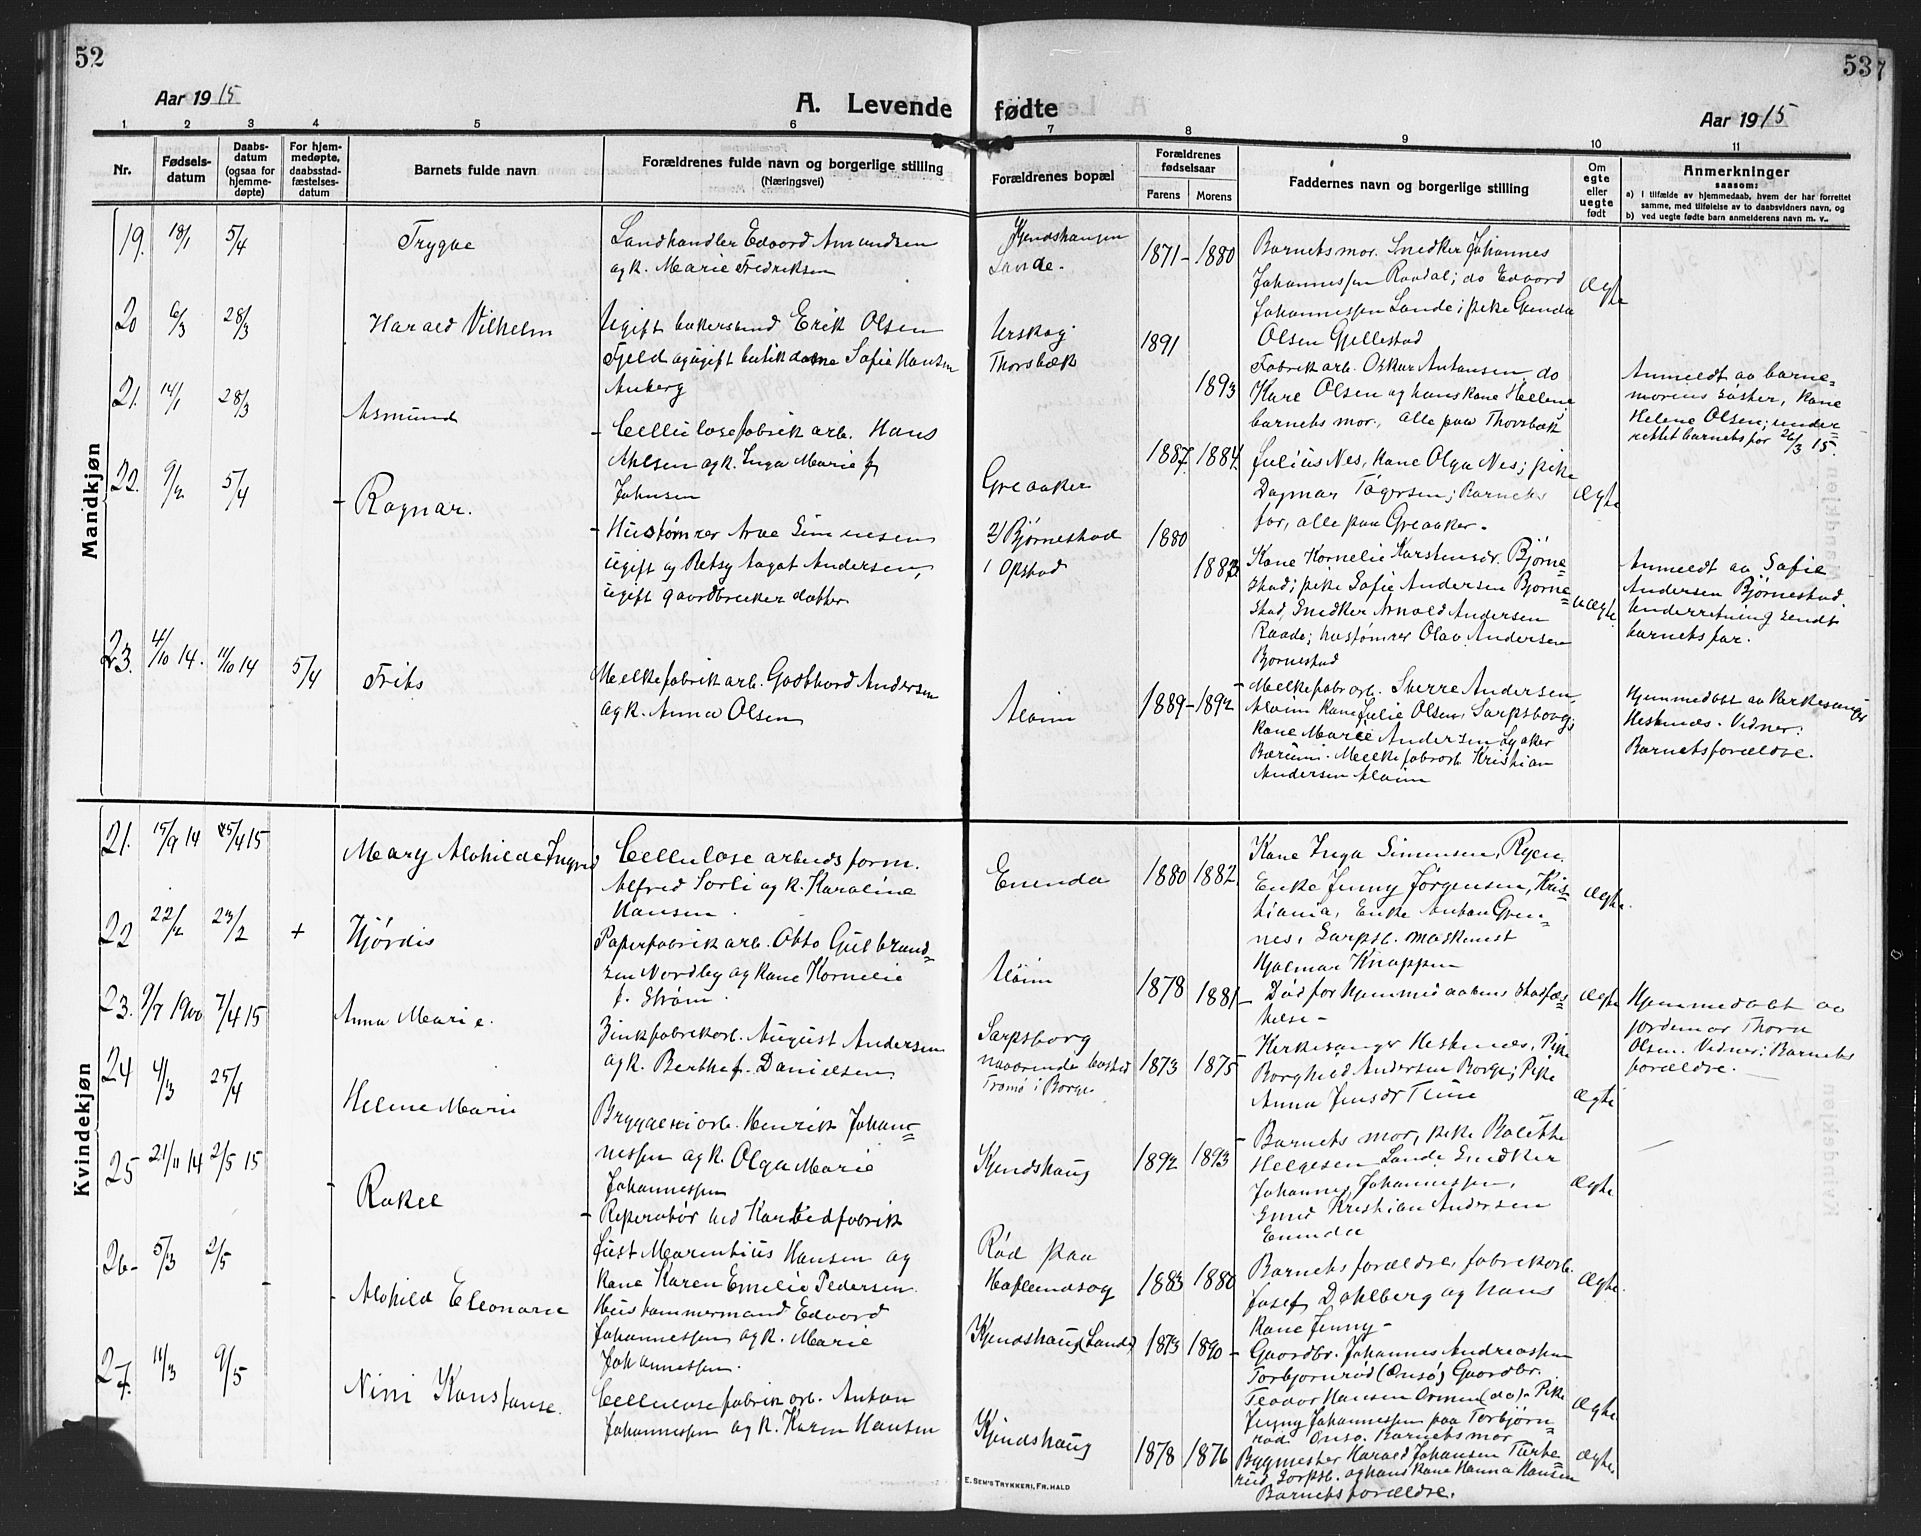 52
53
Aar 1915
A. Levende
fødte
Aar 1915
1
2
3
4
5
6
7
8
9
10
11
Nr.
Fødsels-
datum
Daabs-
datum
(ogsaa for
hjemme-
døpte)
For hjem-
medøpte,
daabsstad-
fæstelses-
datum
Barnets fulde navn
Forældrenes fulde navn og borgerlige stilling
(Næringsvei)
Forældrenes bopæl
Forældrenes
fødselsaar
Farens
Morens
Faddernes navn og borgerlige stilling
Om
egte
eller
uegte
født
Anmerkninger
saasom:
a) I tilfælde av hjemmedaab, hvem der har forrettet
samme, med tilføielse av to daabsvidners navn, og
b) ved uegte fødte barn anmelderens navn m. v.
Mandkjøn
19. 18/1 5/4
Trygve
Landhandler Edvard Amundsen
og k. Marie Fredriksen
Kjendshaugen
Lande.
1871 - 1880
Barnets mor. Snedker Johannes
Johannessen Raadal; do Edvard
Johannessen Lande; pike Gunda
Olsen Gjellestad
Ægte
20 6/3 28/3
Harald Vilhelm
Ugift bakersvend Erik Olsen
Fjeld og ugift butikdame Sofie Hansen
Anberg
Urskog
Thorsbæk
1891
1893
Fabrikarb. Oskar Antonsen do
Karl Olsen og hans kone Hellene
barnets mor, alle paa Thorsbæk
Anmeldt av barne=
morens søster, kone
Helene Olsen; under=
rettet barnets far 26/3 15.
21. 14/1 28/3
Asmund
- Cellulosefabrikarb. Hans
Ahlsen og k. Inga Marie f.
Johnsen
Greaaker
1887. 1884.
Julius Nes, kone Olga Nes; pike
Dagmar Tøgersen; Barnets
far, alle paa Greaaker.
Ægte
22. 9/2 5/4
- Ragnar.
- Hustømrer Arve Simensen
ugift og Betsy Aagot Andersen,
ugift gaardbruker datter
2/ Bjørnestad
1 Opstad
1880
1883
Kone Kornelie Karstensdr. Bjørne=
stad; pike Sofie Andersen Bjørne=
stad, Snedker Arnold Andersen
Raade; hustømrer Olav Andersen
Bjørnestad
uægte
Anmeldt av Sofie
Andersen Bjørnestad.
Underretning sendt
barnets far.
23. 4/10 14. 11/10 14 5/4
Frits
Melkefabrikarb. Godthard Andersen
og k. Anna Olsen
Alvim
1889 - 1892
Melkefabarb. Sverre Andersen
Alvim kone Julie Olsen, Sarpsborg;
kone Marie Andersen Lysaker
Bærum. Melkefabarb Kristian
Andersen Alvim
Hjemmedøbt av kirkesanger
Heskenes. Vidner:
Barnets forældre.
Kvindekjøn
21. 15/9 14 25/4 15
Mary Alvhilde Ingrid
Cellulose arbeids form.
Alfred Sorli og k. Karoline
Hansen.
Enenda
1880 1882.
Kone Inga Simensen, Ryen.
Enke Jenny Jørgensen, Kris=
tiania, Enke Anton Gren=
nes, Sarpsb. Maskinist
Hjalmar Knappen
Ægte.
22 22/2 23/2 +
Hjørdis
Papirfabrikarb. Otto Gulbrand=
sen Nordby og kone Kornelie
f. Strøm.
Alvim
1878 1881 -
Død før hjemmedaabens stadfæs=
telse -
Ægte
23. 9/7 1900 7/4 15
Anna Marie.
Zinkfabrikarb. August Andersen
og k. Berthe f. Danielsen.
Sarpsborg
nuværende bosted
Tromø i Borge
1873 1875
Kirkesanger Heskenes, Pike
Borghild Andersen Borge; Pike
Anna Jensdr Tune
Ægte
Hjemmedøbt av
jordemor Thora
Olsen. Vidner: Barnets
forældre.
24 4/13 25/4
Helene Marie
Bryggeriarb. Henrik Johan=
nessen og k. Olga Marie
Johannessen
Kjendshaug
1892 1893
- Barnets mor, pike Balette
Helgesen Lande Snedker
Johannes Johannessen,
Smed Kristian Andersen
Enenda
Ægte
25 21/11 14 2/5 15
- Rakel
- Reparatør ved Karbidfabrik
Just Marentius Hansen og
kone Karen Emelie Pedersen
Rød paa
Haflundsøy
1883 1880
Barnets forældre, fabrikarb.
Josef Dahlberg og hans
kone Jenny -
Ægte.
26 - 5/13 2/5
- Alvhild Eleonore
Hustømmermand Edvard
Johannessen og k. Marie
Johannessen.
Kjendshaug (Lande)
1873 1890 -
Gaardbr. Johannes Andreassen
Torbjørnrød (Onsø) Gaardbr.
Teodor Hansen Ormen (do) Pike
Jenny Johannessen paa Torbjørn=
rød Onsø. Barnets mor
Ægte
27. 11/3 9/5
Nini Konstanse.
Cellulosefabrikarb. Anton
Johannessen og k. Karen Hansen
Kjendshaug
1878 1876
Bygmester Harald Johansen Ture=
rud, Sarpsb. og hans kone Hanna Hansen
Barnets forældre.
Ægte
E. SEM'S TRYKKERI, FR. HALD